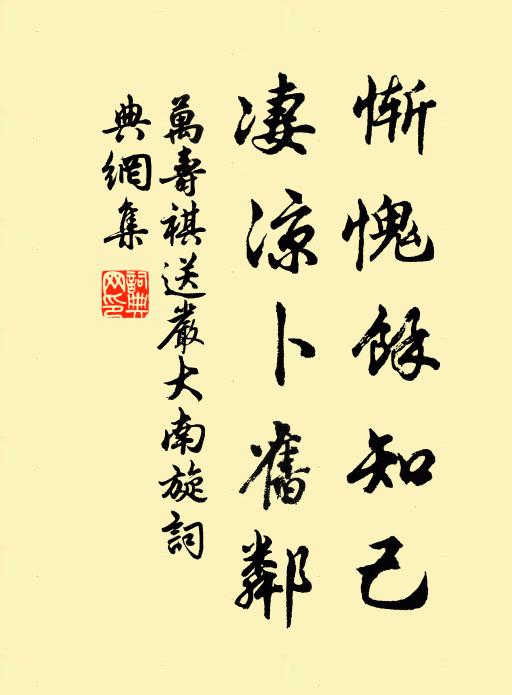 慚愧餘知己
淒涼卜舊鄰
萬壽祺送嚴大南旋詞
典網集
詞典
网印